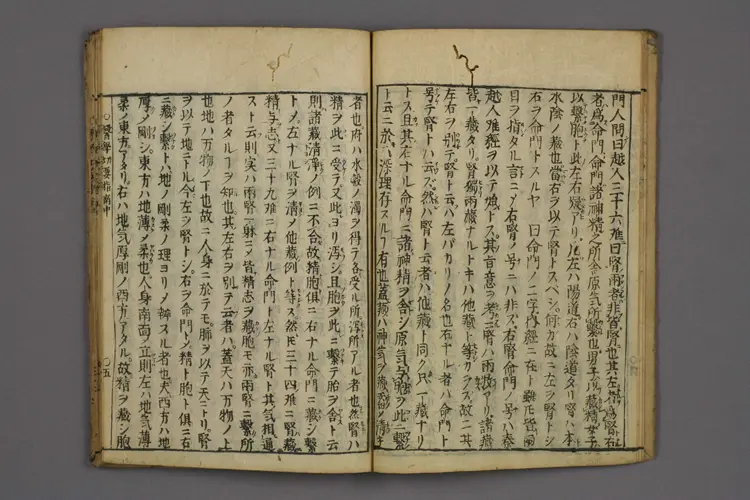 門人問曰越人三十六難曰腎兩者非皆腎也其左者為腎右
者為命門命門諸神精之所舍原氣所繫也男子以藏精女子
以繫胞ト此左右疑アリ凡左ハ陽道右ハ陰道タリ腎ハ本
水陰ノ藏也當ニ右ヲ以テ腎トスベシ何ガ故ニ左ヲ腎トシ
右ヲ命門トスルヤ 曰命門ノ二字内經ニ在ト雖モ皆兩
目ヲ指タル言ニメ右腎ノ号ニハ非ズ右腎命門ノ号ハ秦
越人難經ヲ以テ始トス其言意ヲ考ニ腎ハ兩枚アリ諸藏
皆一藏タリ腎獨兩藏ナルトキハ他藏ト等カラズ故ニ其
左右ヲ別テ腎ト云ハ左バカリノ名也右ナル者ハ命門ト
号テ腎トハ云ズ然ハ腎ト云者ハ他藏ト同ク只一藏ナリ
トス且其右ナル命門ニ諸神精ヲ舍シ原氣与胞ヲ此ニ繫
ト云ニ於ハ深理存スルヿ有也蓋藏ハ神氣ヲ藏
者也府ハ水穀ノ濁ヲ得テ各受ル所瀉所アル者也然腎ハ
精ヲ此ニ受テ又此ヨリ瀉シ且胞ヲ此ニ繫テ胎ヲ舍ト云
則諸藏清淨ノ例ニ不合故精胞俱ニ右ナル命門ニ藏シ繫
トメ左ナル腎ヲ清メ他藏例ト等ス然ㇾ𪜈三十四難ニ腎藏
精与志又三十九難ニ右ナル命門左ナル腎ト其氣相通
スト云則実ハ兩腎一躰ニメ皆精志ヲ藏胞モ亦兩腎ニ繫所
ノ者タルヿヲ知也其左右ヲ別テ云者ハ蓋天ハ万物ノ上
也地ハ万物ノ下也故ニ人身ニ於テモ肺ヲ以テ天ニトリ腎
ヲ以テ地ニトル今左ヲ腎トシ右ヲ命門トメ精ト胞ト俱ニ右
ニ藏シ繫ト地ノ剛柔ノ理ヨリメ辨スル者也夫西方ハ地
厚メ剛シ東方ハ地薄メ柔也人身南面メ立則左ハ地氣薄
柔ノ東方ニアタリ右ハ地氣厚剛ノ西方ニアタル故精ヲ藏シ胞
○醫學切要指南中
○五